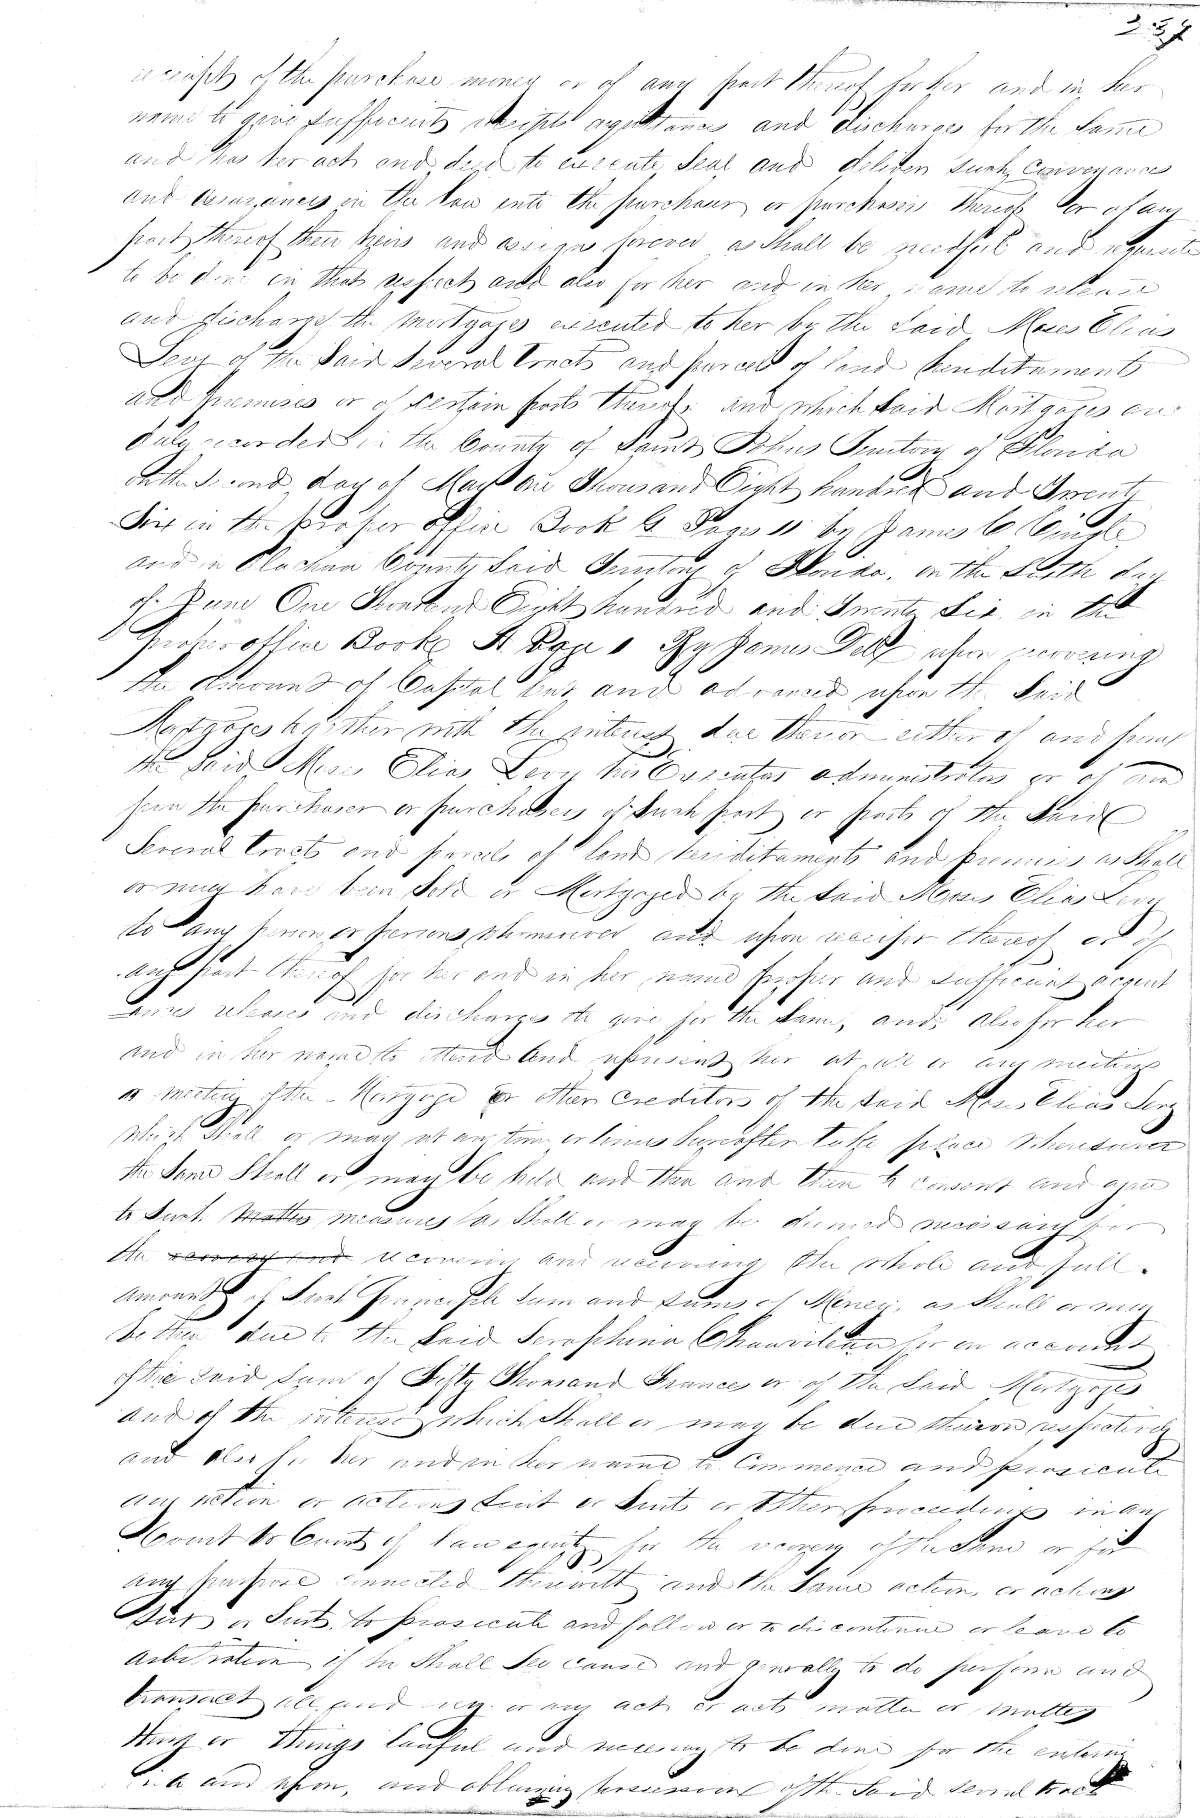 receipts of the purchase money or of any part thereof for her and in her
name to give sufficient receipts acquittances and discharges for the Same
and has her act and deed to execute Seal and deliver such conveyances
and assurances in the law unto the purchaser or purchasers thereof or of any
part thereof their heirs and assigns forever as Shall be needful and requisite
to be done in that respect and also for her and in her name to release
and discharge the mortgages executed to her by the Said Moses Elias
Levy of the Said Several tracts and parcels of land heriditaments
and premises or of certain parts thereof and which Said Mortgages are
duly recorded in the County of Saint Johns Territory of Florida
on the Second day of May One Thousand Eight hundred and Twenty
Six in the proper office Book G Pages 11 by James C
and in Alachua County Said Territory of Florida, on the Sixth day
of June One Thousand Eight hundred and Twenty Six in the
proper office Book A Page 1 By James Dell upon recovering
the amount of Capital lent and advanced upon the Said
Mortgages together with the interest due thereon either of and from
the Said Moses Elias Levy his Executors administrators or of and
from the purchaser or purchasers of Such part or parts of the Said
Several tracts and parcels of land heriditaments and premises as Shall
or may have been Sold or Mortgaged by the Said Moses Elias Levy
to any person or persons whomsoever and upon receipt thereof or of
any part thereof for her and in her name proper and sufficient acquit
ances releases and discharges to give for the Same, and, also for her
and in her name to attend and represent her at all or any meeting
or meeting of the Mortgage or other creditors of the Said Moses Elias Levy
which Shall or may at any time or times hereafter take place wheresoever
the Same Shall or may be held and then and there to consent and agree
to Such matters measures as Shall or may be deemed necessary for
the recovery and recovering and receiving the whole and full
amount of Such Principle Sum and Sums of Money, as Shall or may
be then due to the Said Seraphina Chauviteau for on account
of the Said Sum of Fifty Thousand Frances or of the Said Mortgages
and of the interest which Shall or may be due thereon respectively
and also for her and in her name to Commence and prosicute
any action or actions Suit or Suits or other proceedings in any
Court or Courts of law equity for the recovery of the Same or for
any purpose connected therewith and the Same action or actions
Suit or Suits to prosicute and follow or to discontinue or leave to
arbitration if he Shall See cause and generally to do perform and
transact all and every or any act or acts matter or matters
thing or things lawful and necessary to be done for the entering
into and upon, and obtaining possession of the Said several tracts